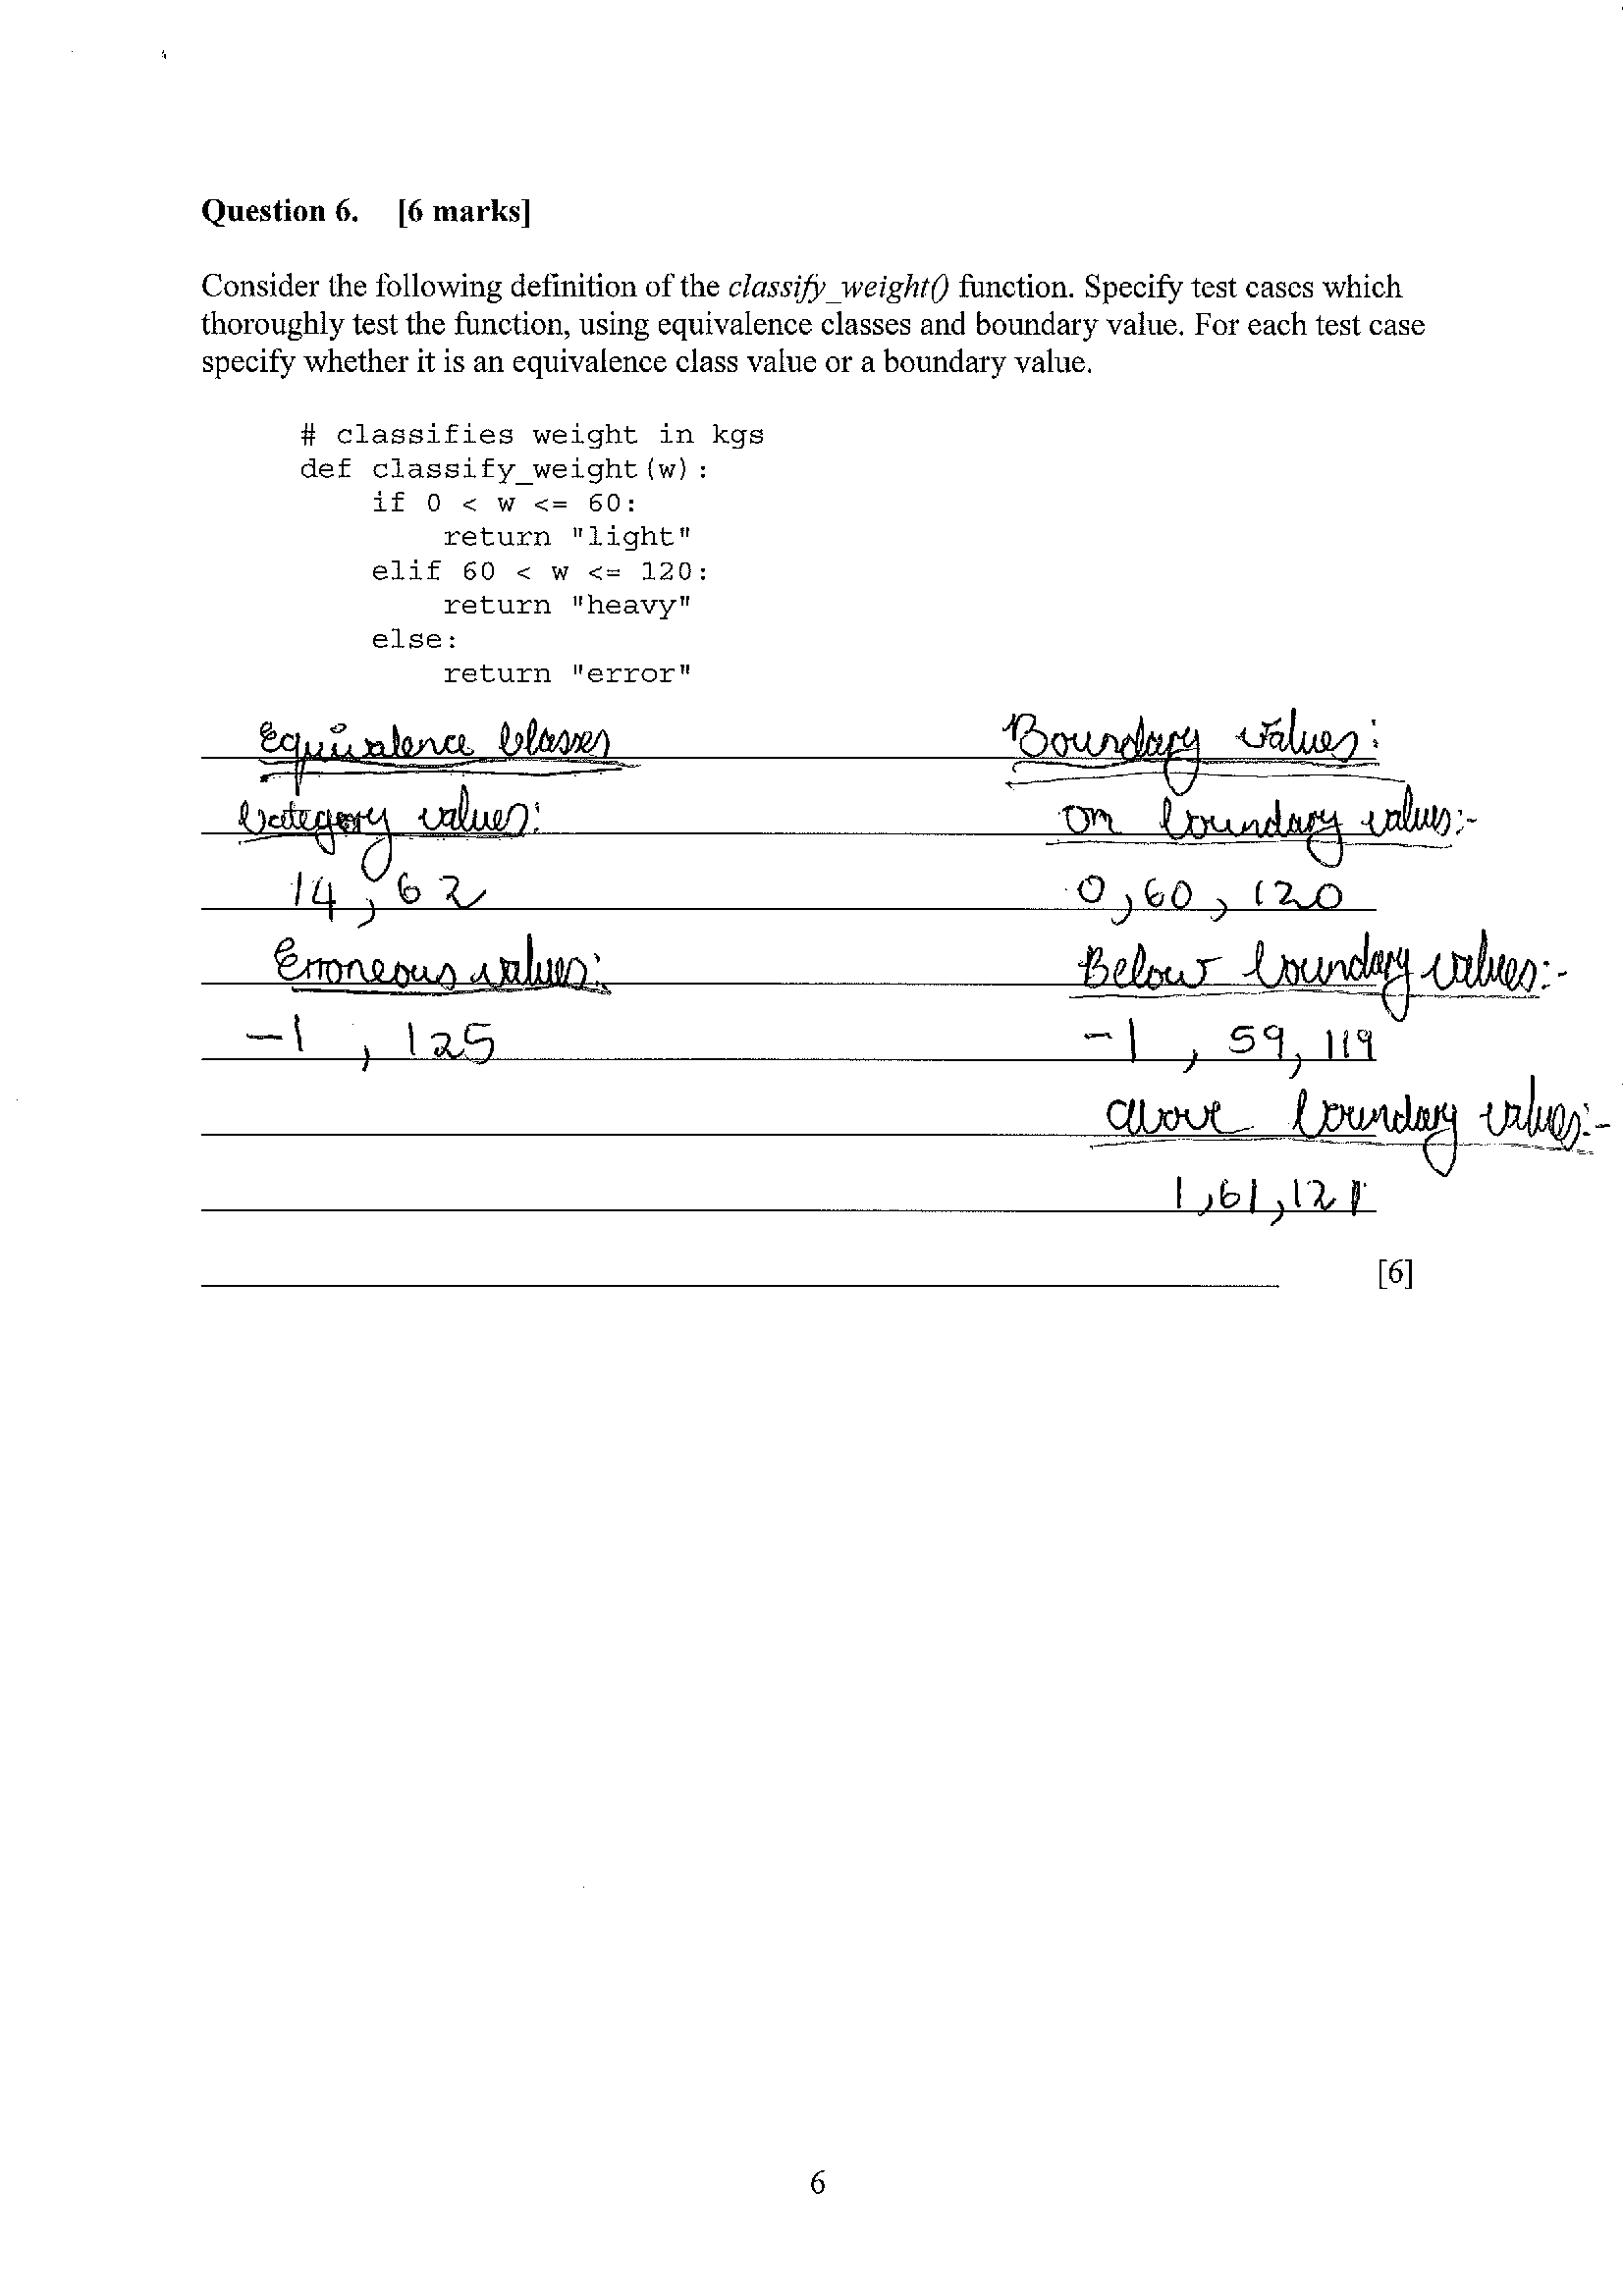 Question 6. [6 marks]
Consider the following definition of the classify_weight() function. Specify test cases which
thoroughly test the function, using equivalence classes and boundary value. For each test case
specify whether it is an equivalence class value or a boundary value.
# classifies weight in kgs
def classify_weight(w):
    if 0 < w <= 60:
        return "light"
    elif 60 < w <= 120:
        return "heavy"
    else:
        return "error"
Equivalence Classes
Category values:
14, 62
Erroneous values:
-1 , 125
Boundary values:
on boundary values:-
0, 60, 120
Below boundary values:-
-1 , 59, 119
above boundary values:-
1, 61, 121
[6]
6